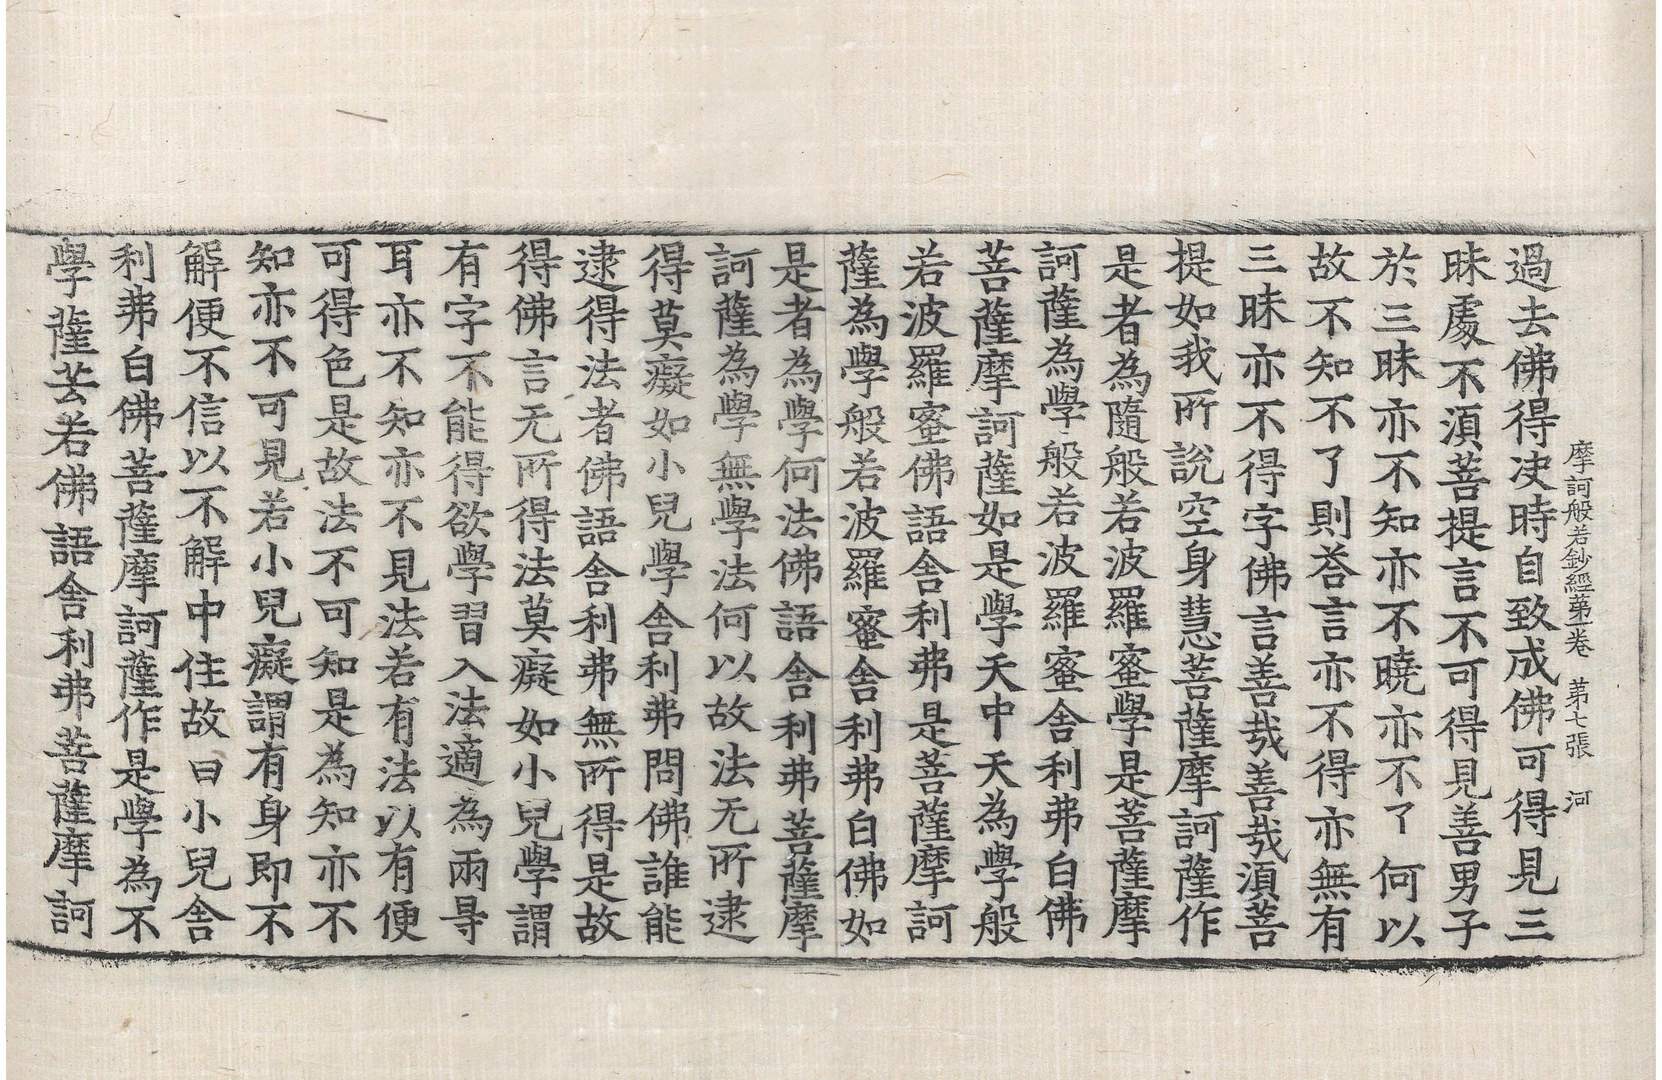 摩訶般若鈔經第一卷 第七張 河
過去佛得决時自致成佛可得見三
昧處不湏菩提言不可得見善男子
於三昧亦不知亦不曉亦不了何以
故不知不了則荅言亦不得亦無有
三昧亦不得字佛言善哉善哉湏菩
提如我所說空身慧菩薩摩訶薩作
是者為隨般若波羅蜜學是菩薩摩
訶薩為學般若波羅蜜舍利弗白佛
菩薩摩訶薩如是學天中天為學般
若波羅蜜佛語舍利弗是菩薩摩訶
薩為學般若波羅蜜舍利弗白佛如
是者為學何法佛語舍利弗菩薩摩
訶薩為學無學法何以故法无所逮
得莫癡如小兒學舍利弗問佛誰能
逮得法者佛語舍利弗無所得是故
得佛言无所得法莫癡如小兒學謂
有字不能得欲學習入法適為兩㝵
耳亦不知亦不見法若有法以有便
可得色是故法不可知是為知亦不
知亦不可見若小兒癡謂有身即不
解便不信以不解中住故曰小兒舍
利弗白佛菩薩摩訶薩作是學為不
學薩芸若佛語舍利弗菩薩摩訶